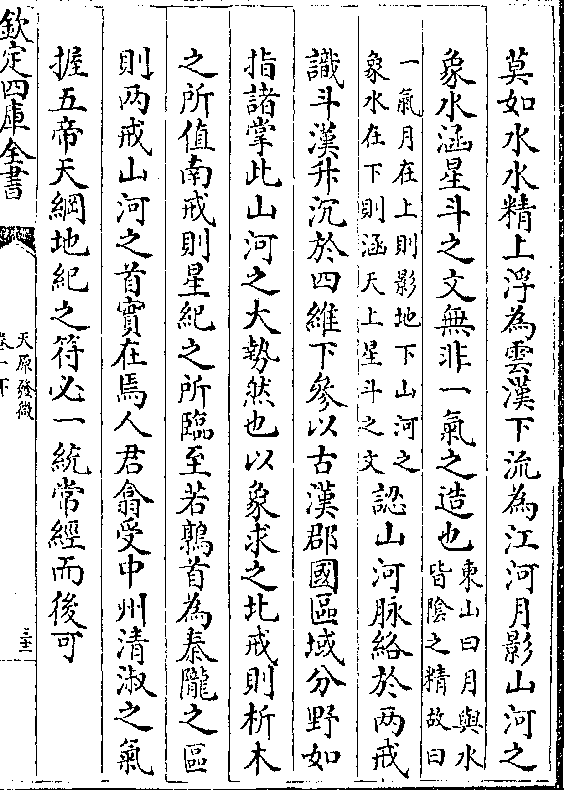 莫如水水精上浮為雲漢下流為江河月影山河之
象水涵星斗之文無非一氣之造也東山曰月與水
皆陰之精故曰
一氣月在上則影地下山河之
象水在下則涵天上星斗之文認山河脉絡於两戒
識斗漢升沉於四維下參以古漢郡國區域分野如
指諸掌此山河之大勢然也以象求之北戒則析木
之所值南戒則星紀之所臨至若鶉首為秦隴之區
則两戒山河之首實在焉人君翕受中州清淑之氣
握五帝天綱地紀之符必一統常經而後可
欽定四庫全書
天原發微
卷一下